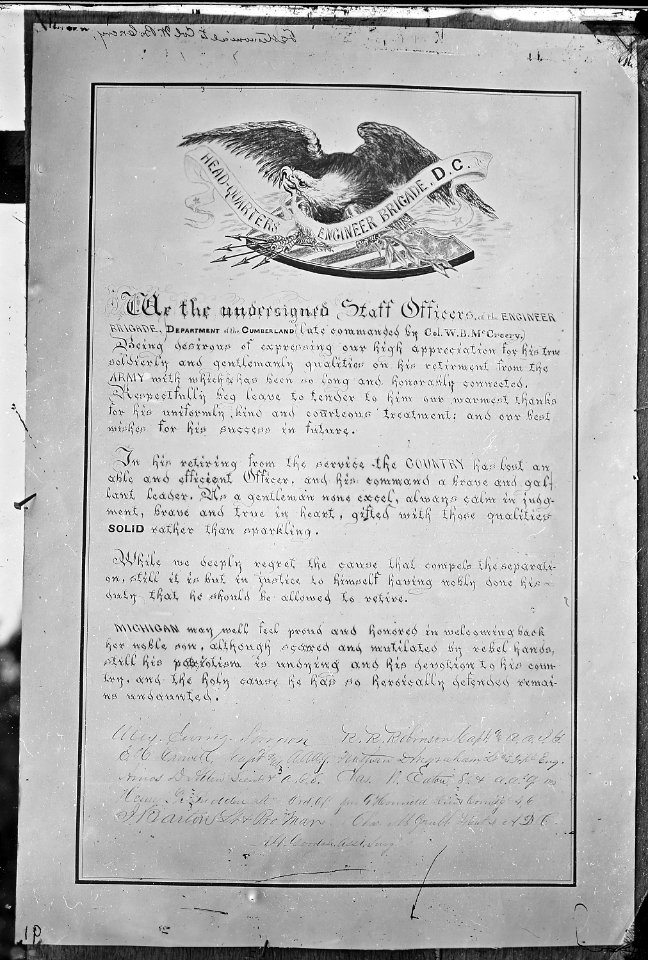 HEAD-QUARTERS ENGINEER BRIGADE, D.C.
We the undersigned Staff Officers, of the ENGINEER
BRIGADE, DEPARTMENT of the CUMBERLAND (late commanded by Col. W. B. McCreery,)
Being desirous of expressing our high appreciation for his true
soldierly and gentlemanly qualities on his retirment from the
ARMY with which he has been so long and honorably connected.
Respectfully beg leave to tender to him our warmest thanks
for his uniformly, kind and courteous treatment: and our best
wishes for his success in future.
In his retiring from the service the COUNTRY has lost an
able and efficient Officer, and his command a brave and gal-
lant leader. As a gentleman none excel, always calm in judg-
ment, brave and true in heart, gifted with those qualities
SOLID rather than sparkling.
While we deeply regret the cause that compels the separati-
on, still it is but in justice to himself having nobly done his
duty that he should be allowed to retire.
MICHIGAN may well feel proud and honored in welcoming back
her noble son, although scared and mutilated by rebel hands,
still his patriotism is undying and his devotion to his coun-
try, and the holy cause he has so heroically defended remai-
ns undaunted.
R. R. Robinson Capt &
Capt
Chas.
19